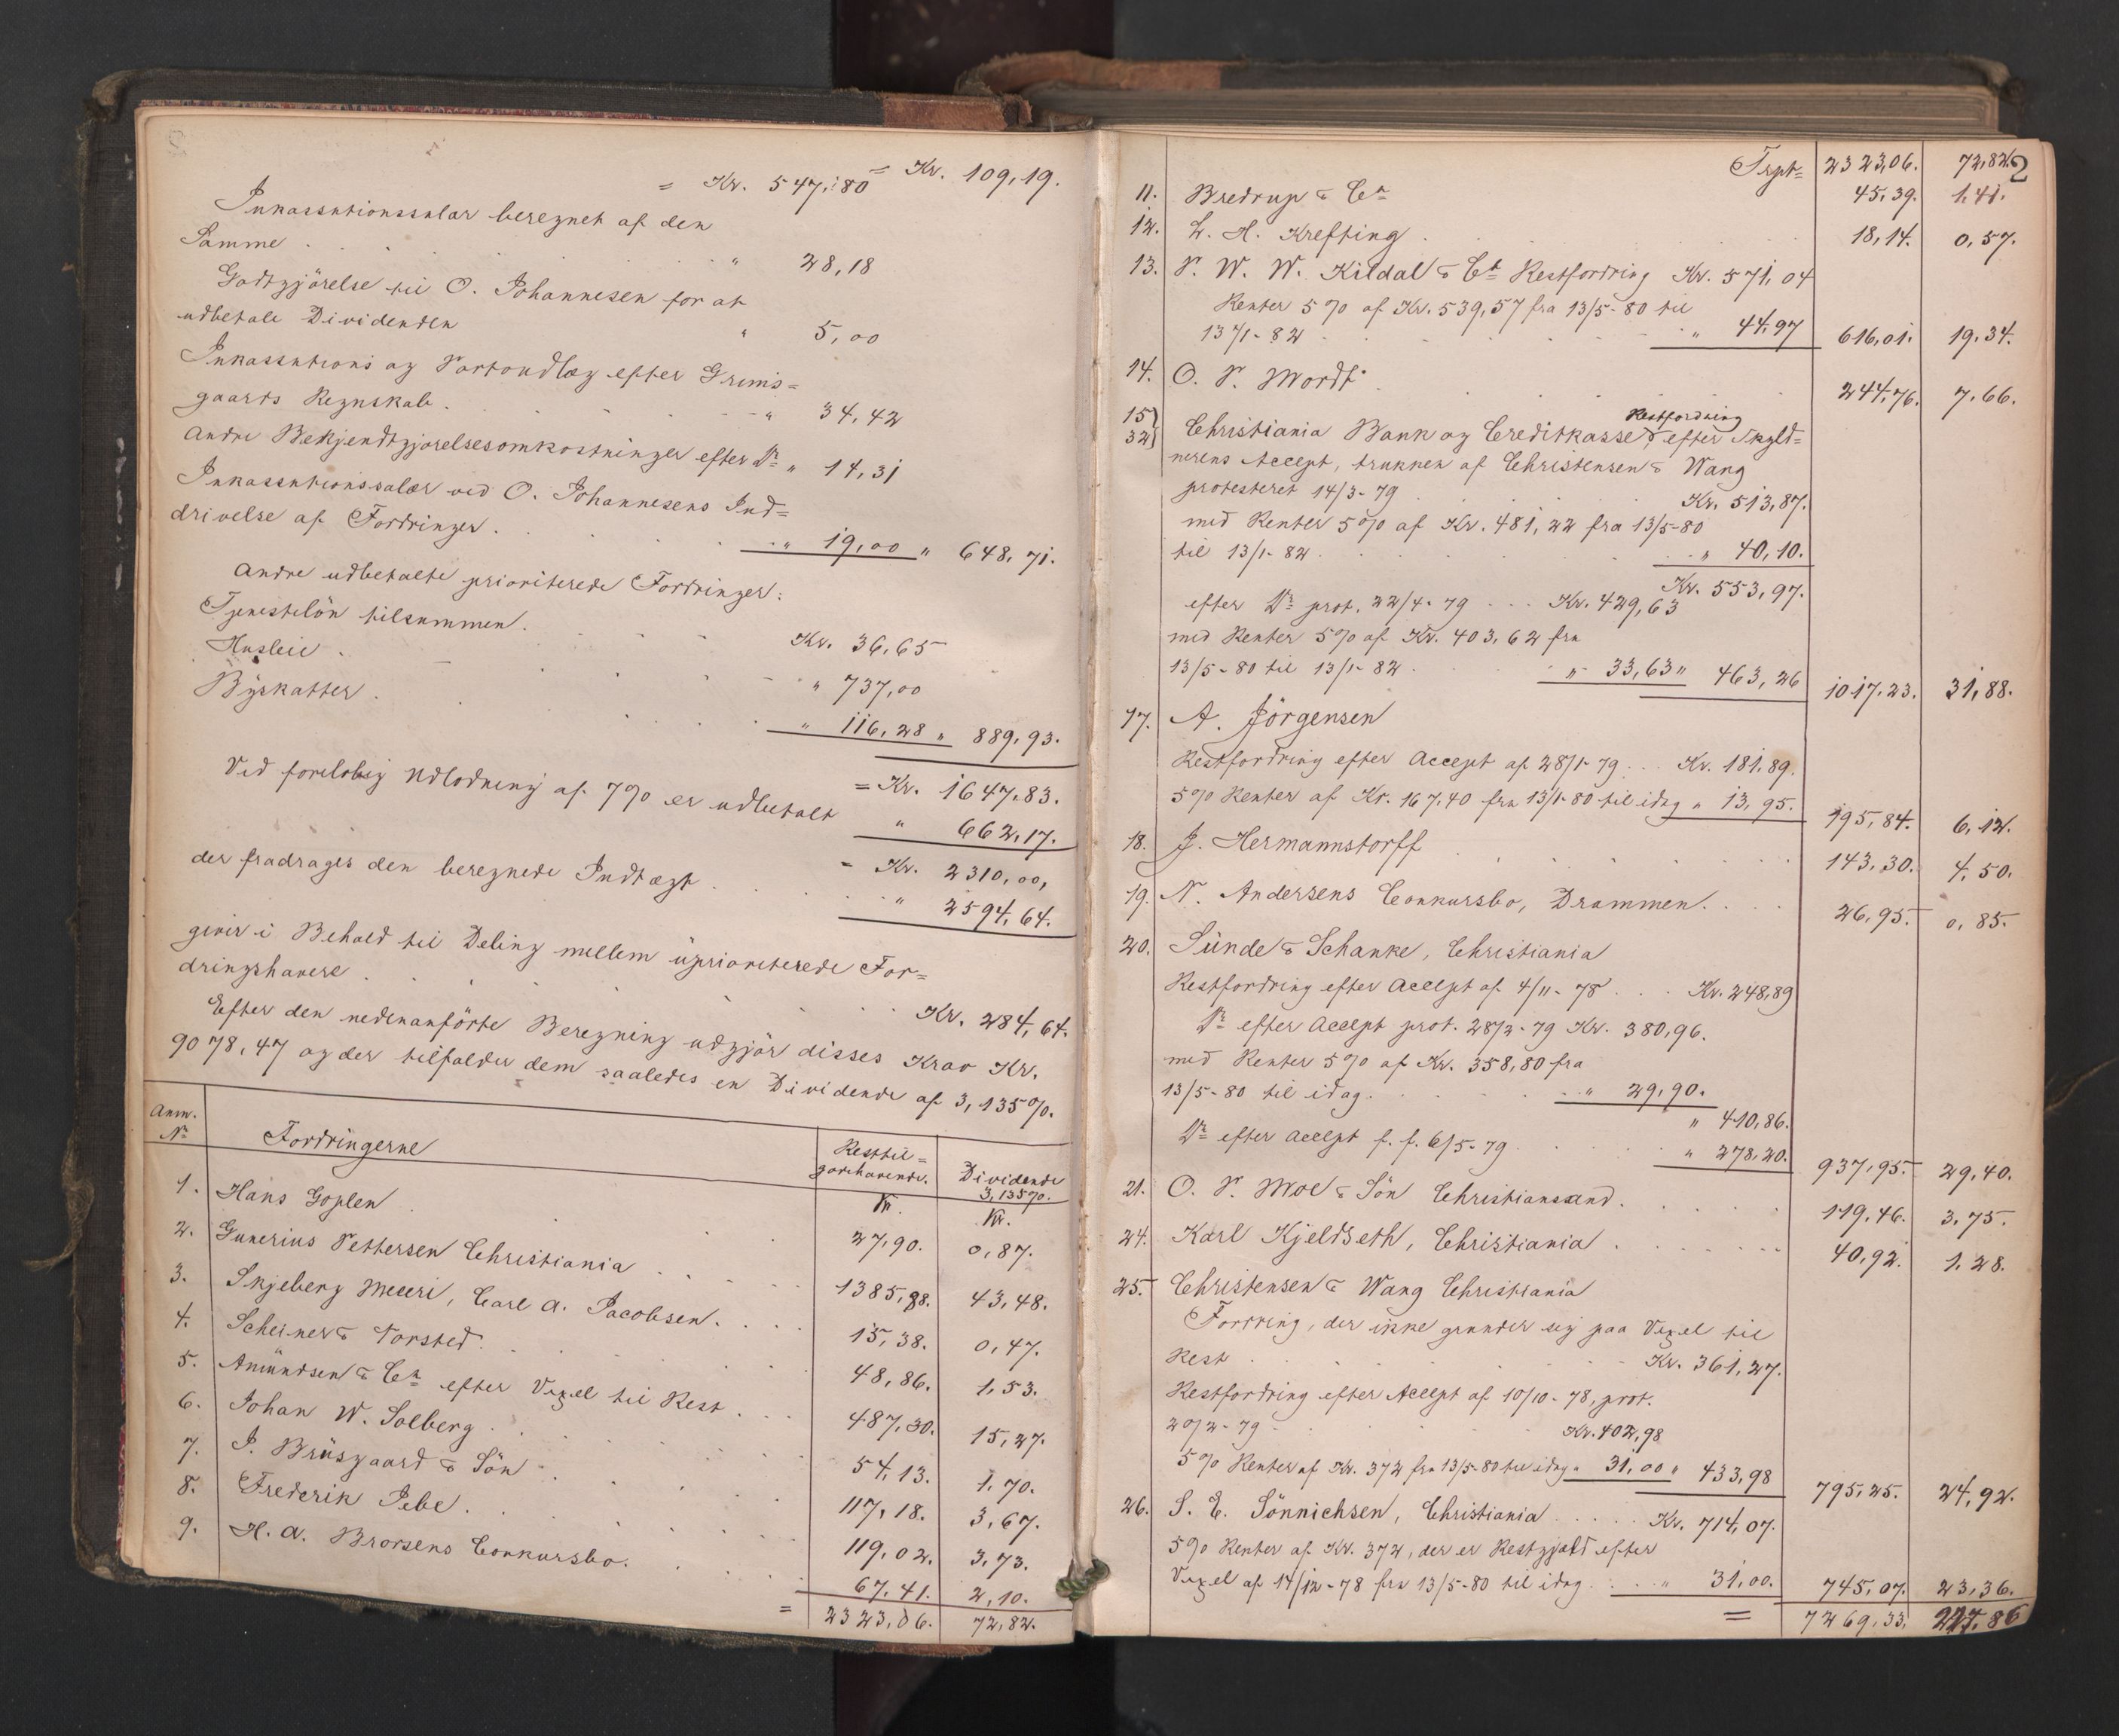 = Kr. 547,80 = Kr. 109,19.
Inkassationssalær beregnet af den
Samme . . . " 28,18
Godtgjørelse til O. Johannesen for at
udbetale Dividenden " 5,00
Inkassations og Portoudlæg efter Grims=
gaards Regnskab . . . " 34,42
Andre Bekjendtgjørelsesomkostninger efter Do " 14,31
Inkassationssalær ved O. Johannesens Ind=
drivelse af Fordringer . . . " 19,00 " 648,71.
Andre udbetalte prioriterede Fordringer:
Tjenestelön tilsammen . . . Kr. 36,65
Husleie . . . " 737,00
Byskatter . . . " 116,28 " 889,93.
= Kr. 1647,83.
Ved foreløbig Udlodning af 7% er udbetalt " 662,17.
= Kr. 2310,00,
der fradrages den beregnede Indtægt . . . " 2594,64.
giver i Behold til Deling mellem uprioriterede For=
dringshavere . . . Kr. 284,64.
Efter den nedenanförte Beregning udgjör disses Krav Kr.
9078,47 og der tilfalder dem saaledes en Dividende af 3,135%.
Anm. No Fordringerne Resttil=godehavende. Dividende 3,135%.
Kr. Kr.
1. Hans Goplen . . . 27,90. 0,87.
2. Gunerius Pettersen Christiania . . . 1385,88. 43,48.
3. Skjeberg Meieri, Carl A. Jacobsen . . . 15,38. 0,47.
4. Scheiner & Torsted . . . 48,86. 1,53.
5. Amundsen & Co efter Vexel til Rest . . . 487,30. 15,27.
6. Johan W. Solberg . . . 54,13. 1,70.
7. J. Brüsgaard & Sön . . . 117,18. 3,67.
8. Frederik Pebe . . . 119,02. 3,73.
9. H. A. Brorsens Conkursbo . . . 67,41. 2,10.
= 2323,06. 72,82.
2
Trpt= 2323,06. 72,82.
11. Bredrup & Co 45,39. 1,41.
12. L. H. Krefting . . . 18,14. 0,57.
13. P. W. W. Kildal & Co Restfordring Kr. 571,04
Renter 5% af Kr. 539,57 fra 13/5-80 til
13/1-82 . . . " 44,97 616,01. 19,34.
14. O. P. Mordt . . . 244,76. 7,66.
Restfordring
15) 32) Christiania Bank og Creditkasse efter Skyld=
nerens Accept, trukken af Christensen & Wang
protesteret 14/3-79 . . . Kr. 513,87.
med Renter 5% af Kr. 481,22 fra 13/5-80
til 13/1-82 . . . " 40,10.
Kr. 553,97.
efter Do prot. 22/4-79 . . . Kr. 429,63
med Renter 5% af Kr. 403,62 fra
13/5-80 til 13/1-82 . . . " 33,63 " 463,26 1017,23. 31,88.
17. A. Jörgensen
Restfordring efter Accept af 28/1-79 . . . Kr. 181,89.
5% Renter af Kr. 167,40 fra 13/5-80 til idag " 13,95. 195,84. 6,12.
18. J. Hermannstorff . . . 143,30. 4,50.
19. N. Andersens Conkursbo, Drammen . . . 26,95. 0,85.
20. Sünde & Schanke, Christiania
Restfordring efter Accept af 4/11-78 . . . Kr. 248,89
Do efter Accept prot. 28/2-79 Kr. 380,96.
med Renter 5% af Kr. 358,80 fra
13/5-80 til idag . . . " 29,90.
" 410,86.
Do efter Accept f. f. 6/5-79 . . . " 278,20. 937,95. 29,40.
21. O. P. Moe & Sön Christianssand . . . 119,46. 3,75.
24. Karl Kjeldseth, Christiania . . . 40,92. 1,28.
25. Christensen & Wang Christiania
Fordring, der ikke grunder sig paa Vexel til
Rest . . . Kr. 361,27.
Restfordring efter Accept af 10/10-78, prot.
20/2-79 . . . Kr. 402,98
5% Renter af Kr. 372 fra 13/5-80 til idag " 31,00 " 433,98 795,25. 24,92.
26. S. E. Sönnichsen, Christiania . . . Kr. 714,07.
5% Renter af Kr. 372, der er Restgjæld efter
Vexel af 14/12-78 fra 13/5-80 til idag . . . " 31,00. 745,07. 23,36.
= 7269,33. 227,86